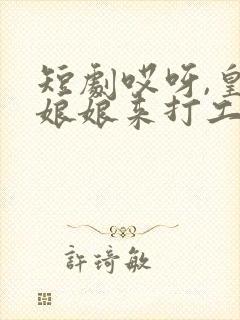 短劇哎呀,皇
娘娘来打工
許琦敏